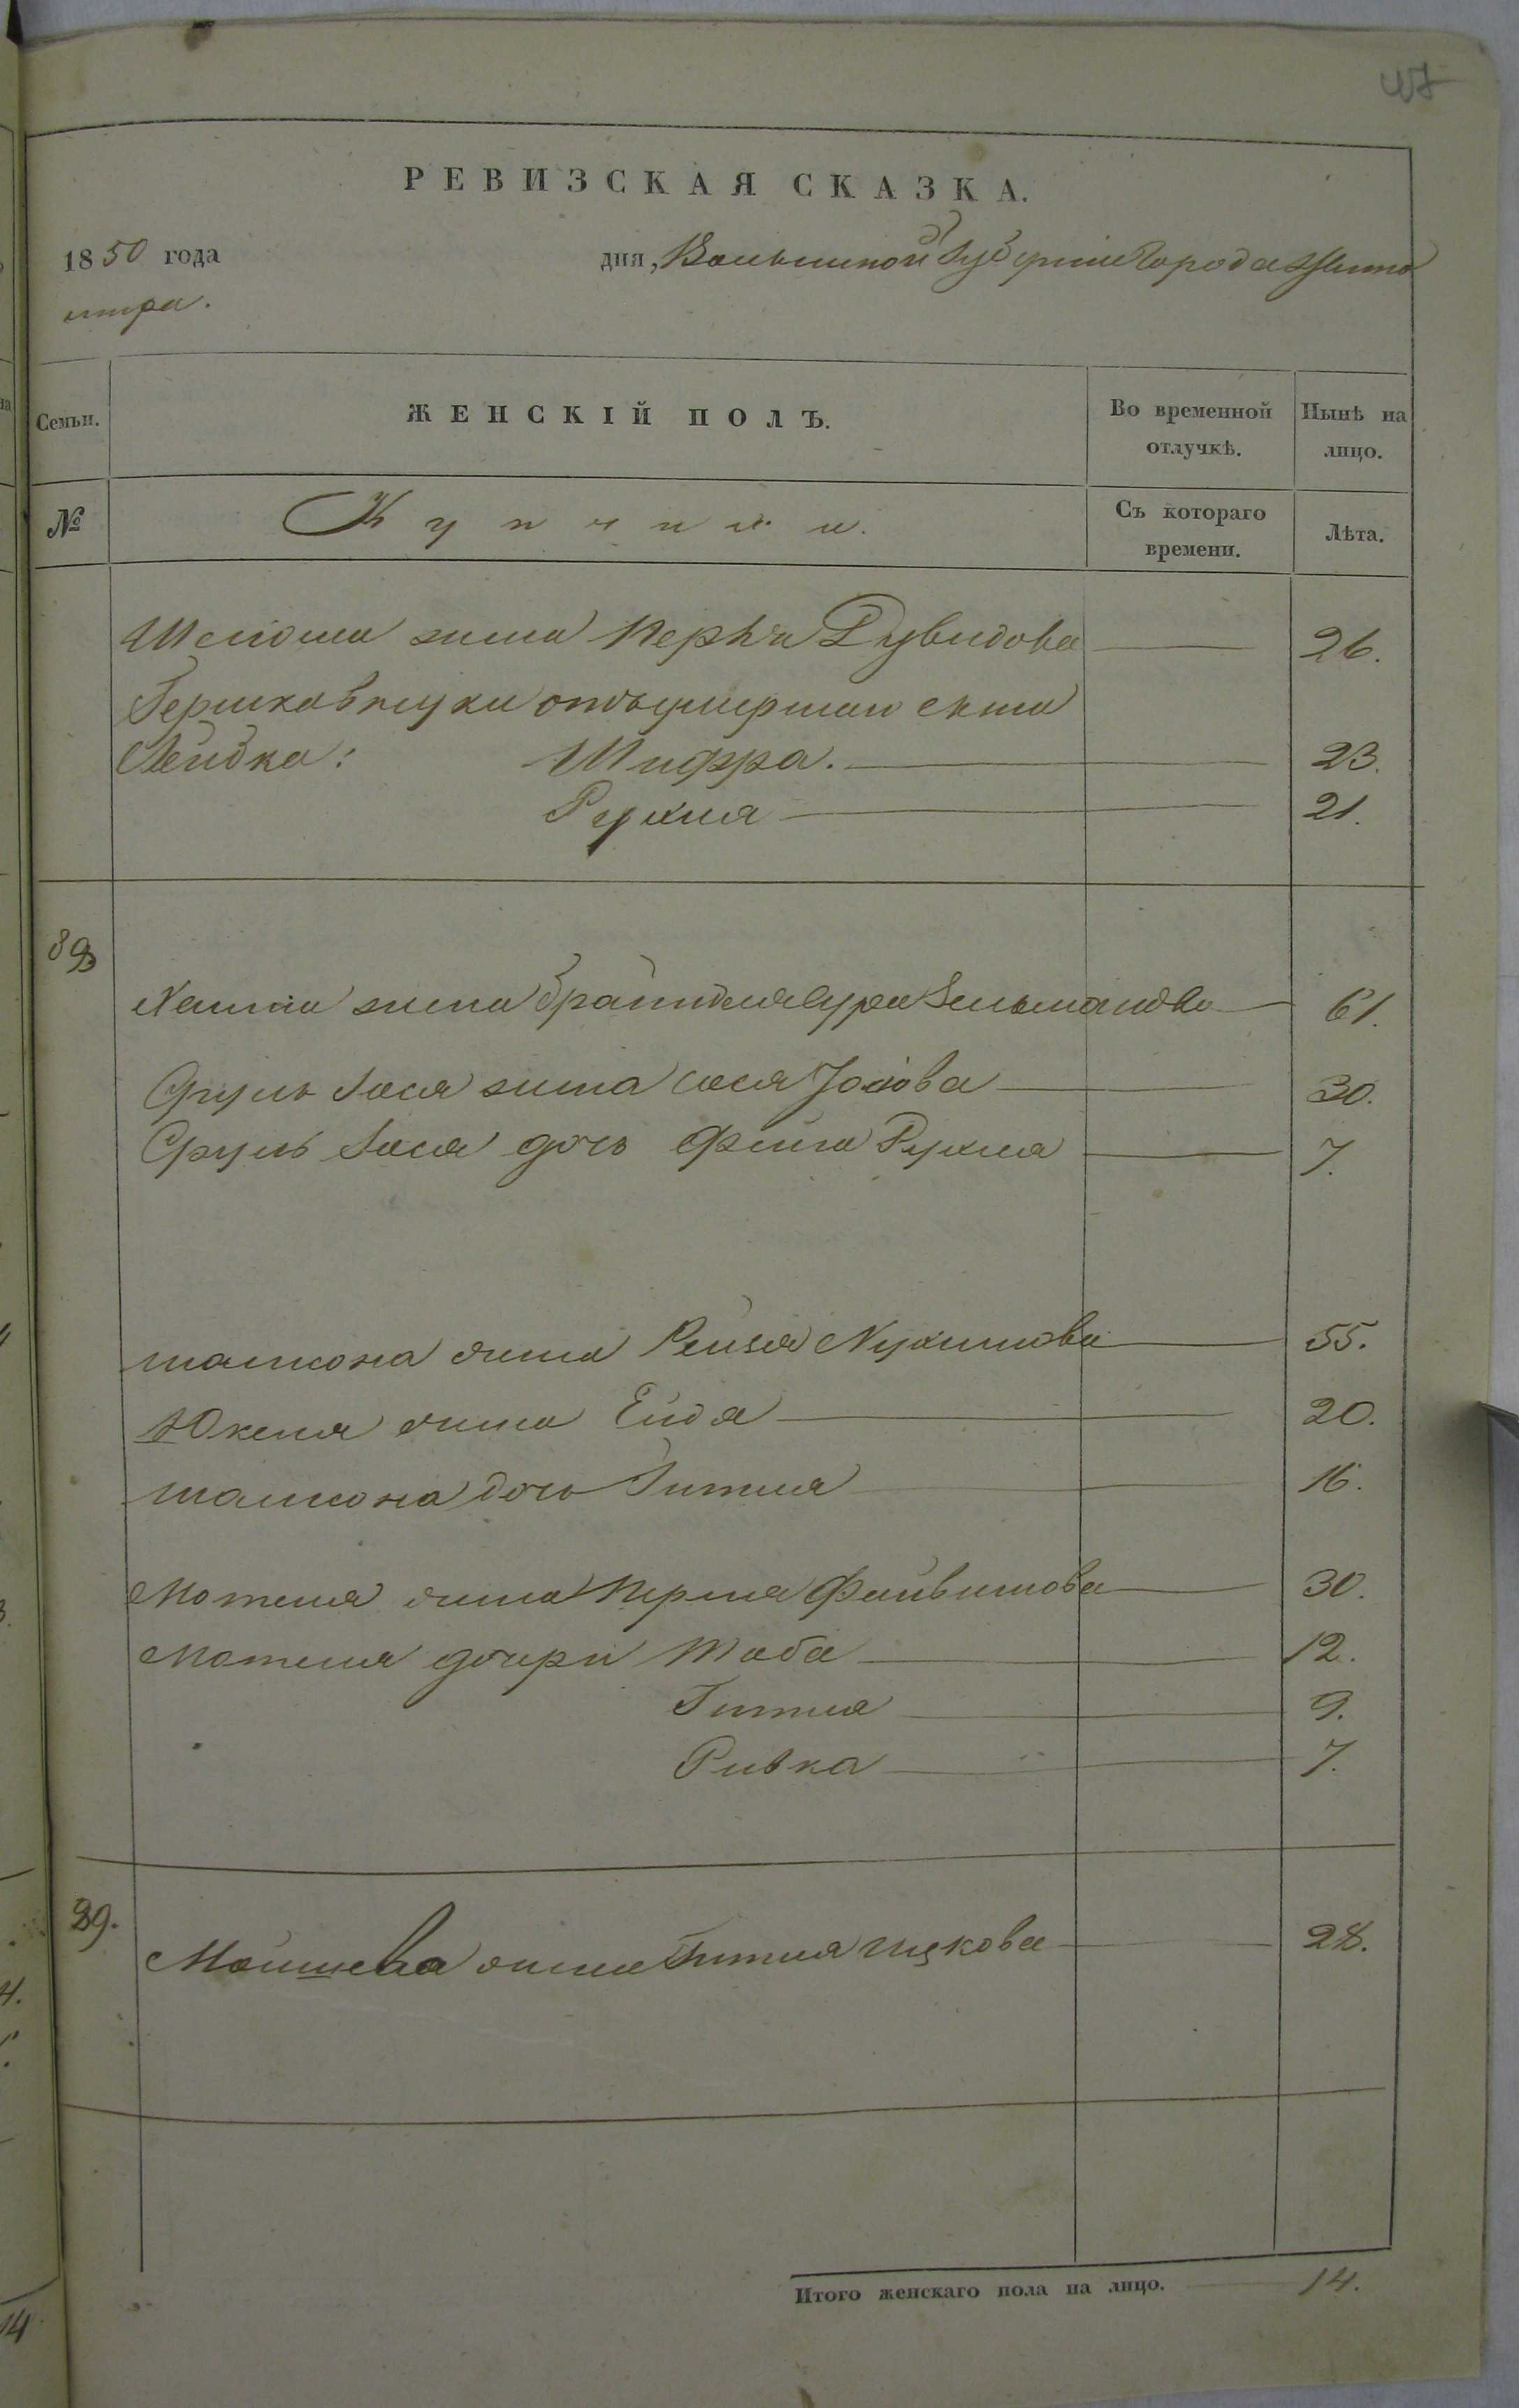 РЕВИЗСКАЯ СКАЗКА.
1850 года дня, Волынской Губерніи Города Жито
мира.
Семьи. ЖЕНСКІЙ ПОЛЪ. Во временной отлучкѣ. Нынѣ на лицо.
№ Съ котораго времени. Лѣта.
жена Перля Дувидова 26.
Гершковы внуки отъ умершаго сына
Лейбка: Шифра. 23.
Рухля 21.
89
жена Брайндля Сура Зельманова 61.
Сруль Іося жена Сося 30.
Сруль Іося дочь Фейга Рухля 7.
жена Рейзя Нухимова 55.
Юкеля жена Ейдя 20.
дочь Гитля 16.
Мотеля жена Перля Файвишова 30.
Мотеля дочери Тоба 12.
Гитля 9.
Ривка 7.
39.
Мошкова жена Гитля Ицкова 28.
Итого женскаго пола на лицо. 14.